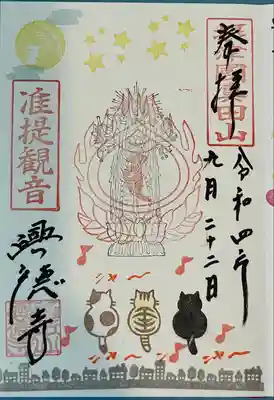 奉拝
令和四年
九月二十二日
准提観音
興徳寺